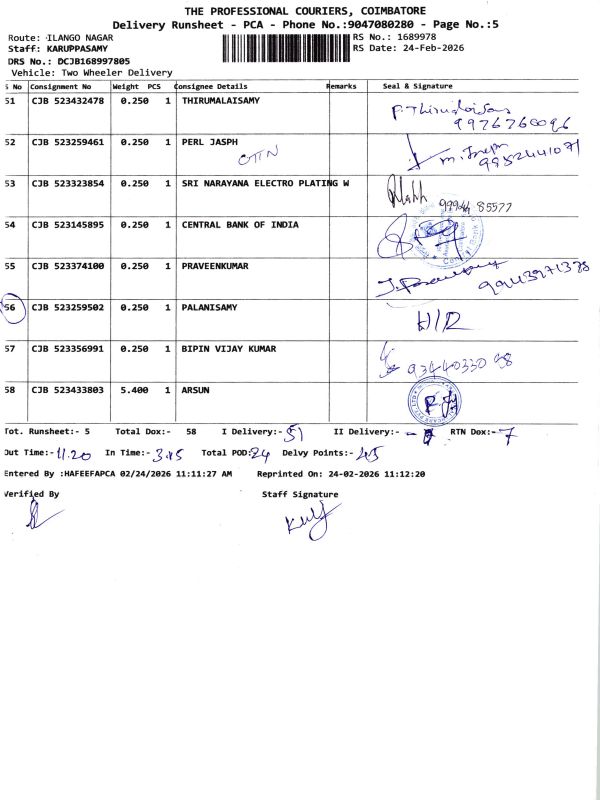 THE PROFESSIONAL COURIERS, COIMBATORE
Delivery Runsheet - PCA - Phone No.:9047080280 - Page No.:5
Route: ILANGO NAGAR
RS No.: 1689978
Staff: KARUPPASAMY
RS Date: 24-Feb-2026
DRS No.: DCJB168997805
Vehicle: Two Wheeler Delivery
S No Consignment No Weight PCS Consignee Details Remarks Seal & Signature
51 CJB 523432478 0.250 1 THIRUMALAISAMY
9976760096
52 CJB 523259461 0.250 1 PERL JASPH
9952441071
53 CJB 523323854 0.250 1 SRI NARAYANA ELECTRO PLATING W
99944 85577
54 CJB 523145895 0.250 1 CENTRAL BANK OF INDIA
55 CJB 523374100 0.250 1 PRAVEENKUMAR
99443971378
56 CJB 523259502 0.250 1 PALANISAMY
57 CJB 523356991 0.250 1 BIPIN VIJAY KUMAR
58 CJB 523433803 5.400 1 ARSUN
Tot. Runsheet:- 5 Total Dox:- 58 I Delivery:- 51 II Delivery:- RTN Dox:- 7
Out Time:- 11.20 In Time:- 3.45 Total POD: 24 Delvy Points:- 45
Entered By :HAFEEFAPCA 02/24/2026 11:11:27 AM Reprinted On: 24-02-2026 11:12:20
Verified By Staff Signature